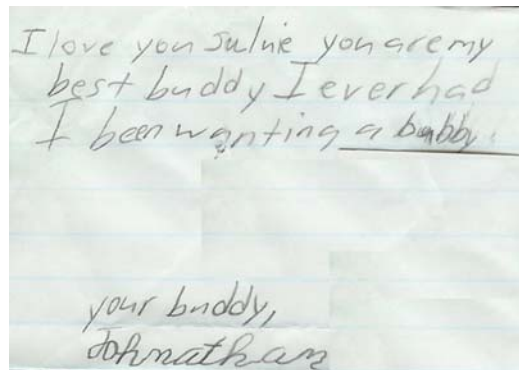 I love you Julnie you are my
best buddy I ever had
I been wanting a bubby.
your buddy,
Johnathan